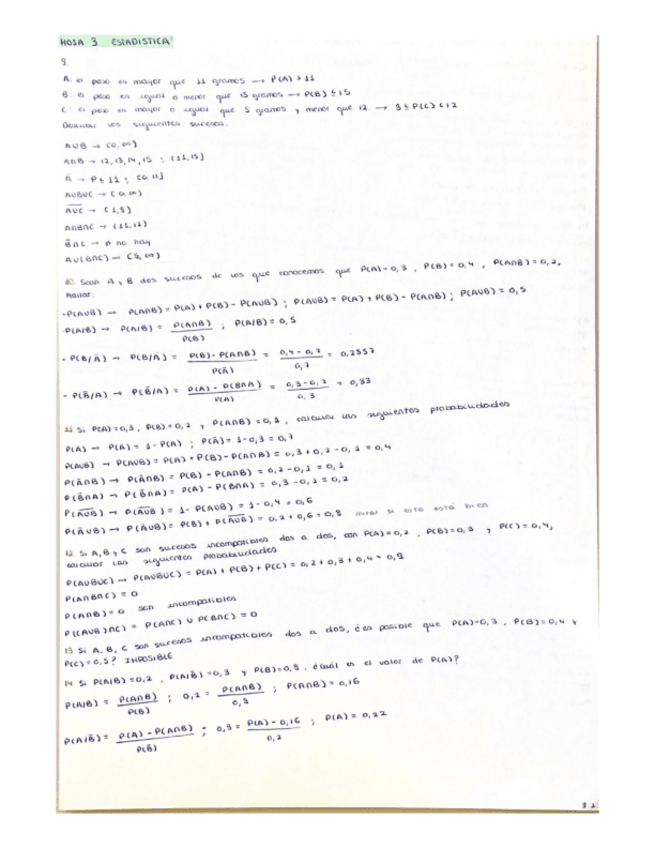 HOJA 3 ESTADISTICA
9.
A: el peso es mayor que 11 gramos → P(A) > 11
B: el peso es igual o menor que 15 gramos → P(B) ≤ 15
C: el peso es mayor o igual que 9 gramos y menor que 12 → 9 ≤ P(C) < 12
Describir los siguientes sucesos:
AUB → (0, ∞)
A∩B → 12, 13, 14, 15 ; (11, 15]
Ā → P ≤ 11 ; (0, 11]
AUBUC → (0, ∞)
A∩B∩C → (11, 12)
B̄∩C → no hay
AU(B∩C) → (9, ∞)
10. Sean A y B dos sucesos de los que conocemos que P(A)=0,3 , P(B)=0,4 , P(A∩B)=0,2,
Hallar:
- P(AUB) → P(A∩B) = P(A) + P(B) - P(AUB) ; P(AUB) = P(A) + P(B) - P(A∩B) ; P(AUB) = 0,5
- P(A/B) → P(A/B) = P(A∩B) / P(B) ; P(A/B) = 0,5
- P(B/Ā) → P(B/Ā) = P(B) - P(A∩B) / P(Ā) = 0,4 - 0,2 / 0,7 = 0,2857
- P(B̄/A) → P(B̄/A) = P(A) - P(B∩A) / P(A) = 0,3 - 0,2 / 0,3 = 0,33
11. Si P(A)=0,3 , P(B)=0,2 y P(A∩B)=0,1 , calcular las siguientes probabilidades
P(Ā) → P(Ā) = 1 - P(A) ; P(Ā) = 1 - 0,3 = 0,7
P(AUB) → P(AUB) = P(A) + P(B) - P(A∩B) = 0,3 + 0,2 - 0,1 = 0,4
P(Ā∩B) → P(Ā∩B) = P(B) - P(A∩B) = 0,2 - 0,1 = 0,1
P(B̄∩A) → P(B̄∩A) = P(A) - P(B∩A) = 0,3 - 0,1 = 0,2
P(A̅U̅B̅) → P(A̅U̅B̅) = 1 - P(AUB) = 1 - 0,4 = 0,6
P(ĀUB) → P(ĀUB) = P(B) + P(A̅U̅B̅) = 0,2 + 0,6 = 0,8 mirar si esto está bien
12. Si A, B y C son sucesos incompatibles dos a dos, con P(A)=0,2 , P(B)=0,3 y P(C)=0,4,
calcular las siguientes probabilidades
P(AUBUC) → P(AUBUC) = P(A) + P(B) + P(C) = 0,2 + 0,3 + 0,4 = 0,9
P(A∩B∩C) = 0
P(A∩B) = 0 son incompatibles
P((AUB)∩C) = P(A∩C) U P(B∩C) = 0
13 Si A, B, C son sucesos incompatibles dos a dos, ¿es posible que P(A)=0,3 , P(B)=0,4 y
P(C)=0,5? IMPOSIBLE
14. Si P(A/B)=0,2 , P(A/B̄)=0,3 y P(B)=0,8 . ¿cuál es el valor de P(A)?
P(A/B) = P(A∩B) / P(B) ; 0,2 = P(A∩B) / 0,8 ; P(A∩B) = 0,16
P(A/B̄) = P(A) - P(A∩B) / P(B̄) ; 0,3 = P(A) - 0,16 / 0,2 ; P(A) = 0,22